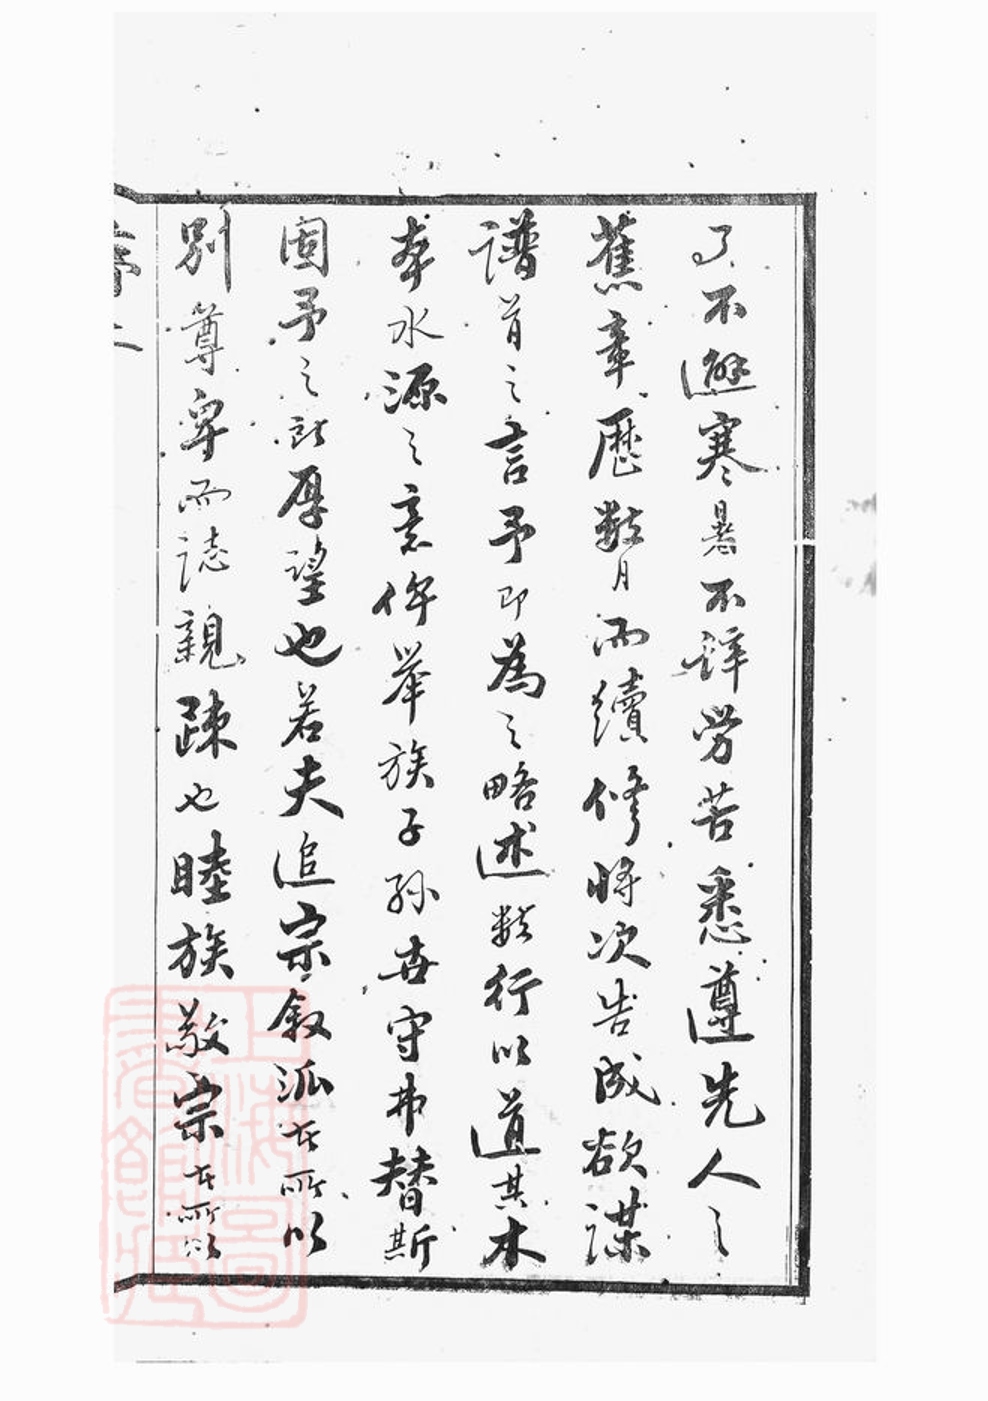 了不避寒暑不辞勞苦悉遵先人之
舊章歷數月而續修將次告成欲謀
譜首之言予即為之略述數行以道其木
本水源之意俾舉族子孫世守弗替斯
固予之所厚望也若夫追宗叙派者所以
別尊卑而誌親疎也睦族敬宗者所以
上海圖書館藏